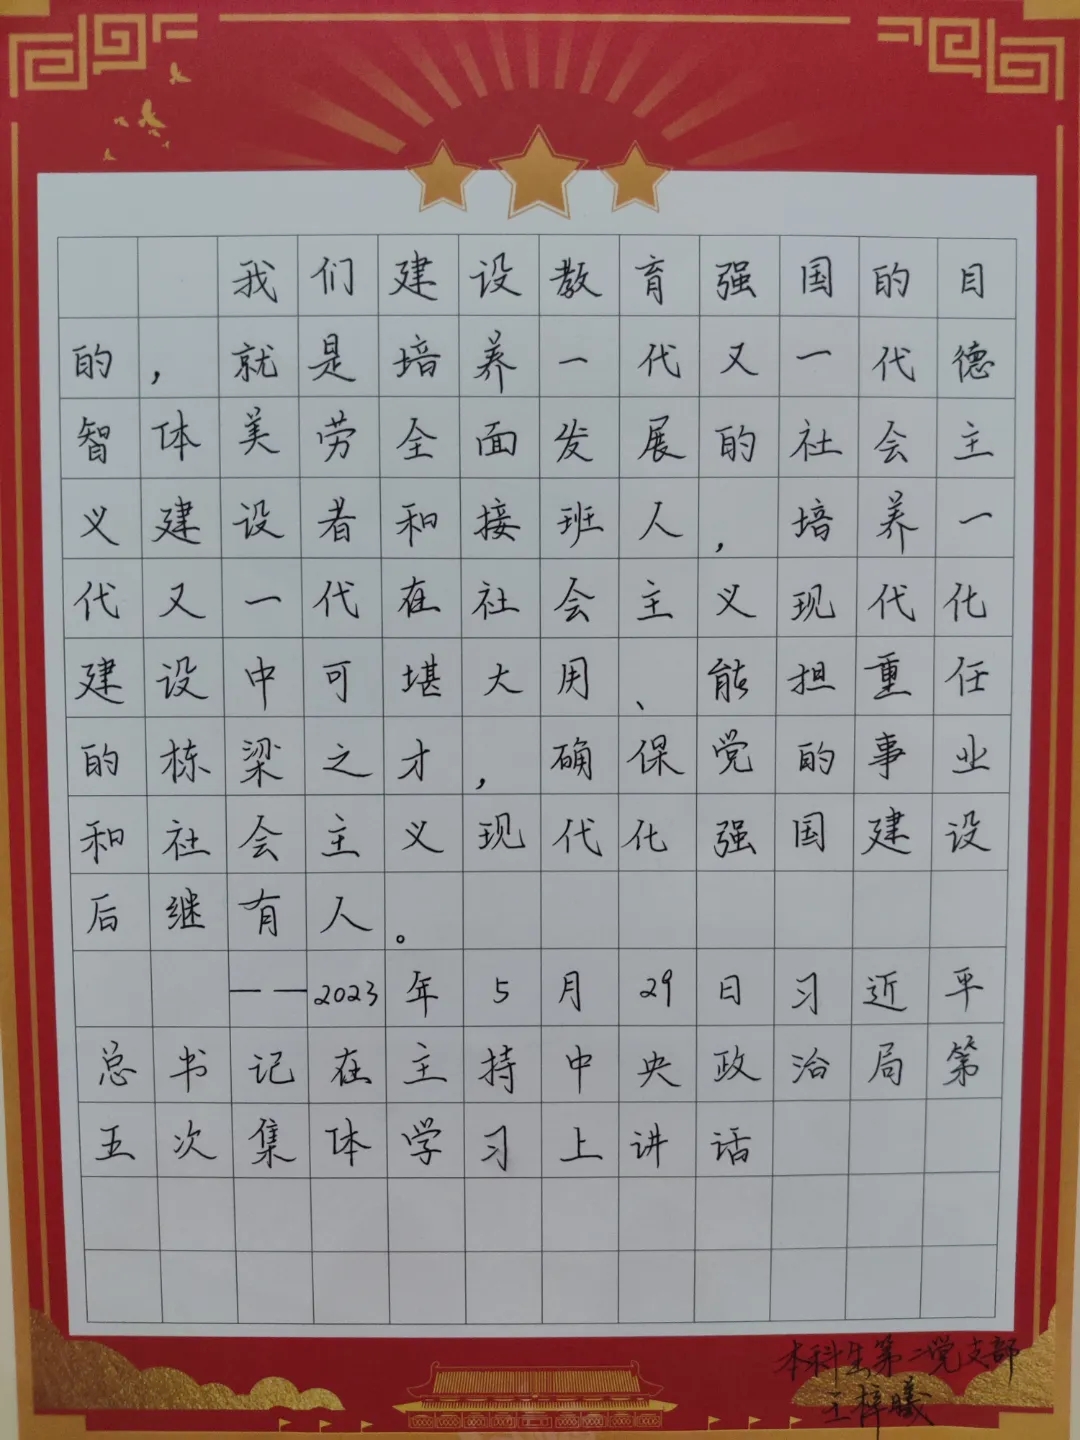 我们建设教育强国的目
的，就是培养一代又一代德
智体美劳全面发展的社会主
义建设者和接班人，培养一
代又一代在社会主义现代化
建设中可堪大用、能担重任
的栋梁之才，确保党的事业
和社会主义现代化强国建设
后继有人。
——2023年5月29日习近平
总书记在主持中央政治局第
五次集体学习上讲话
本科生第二党支部
王梓曦